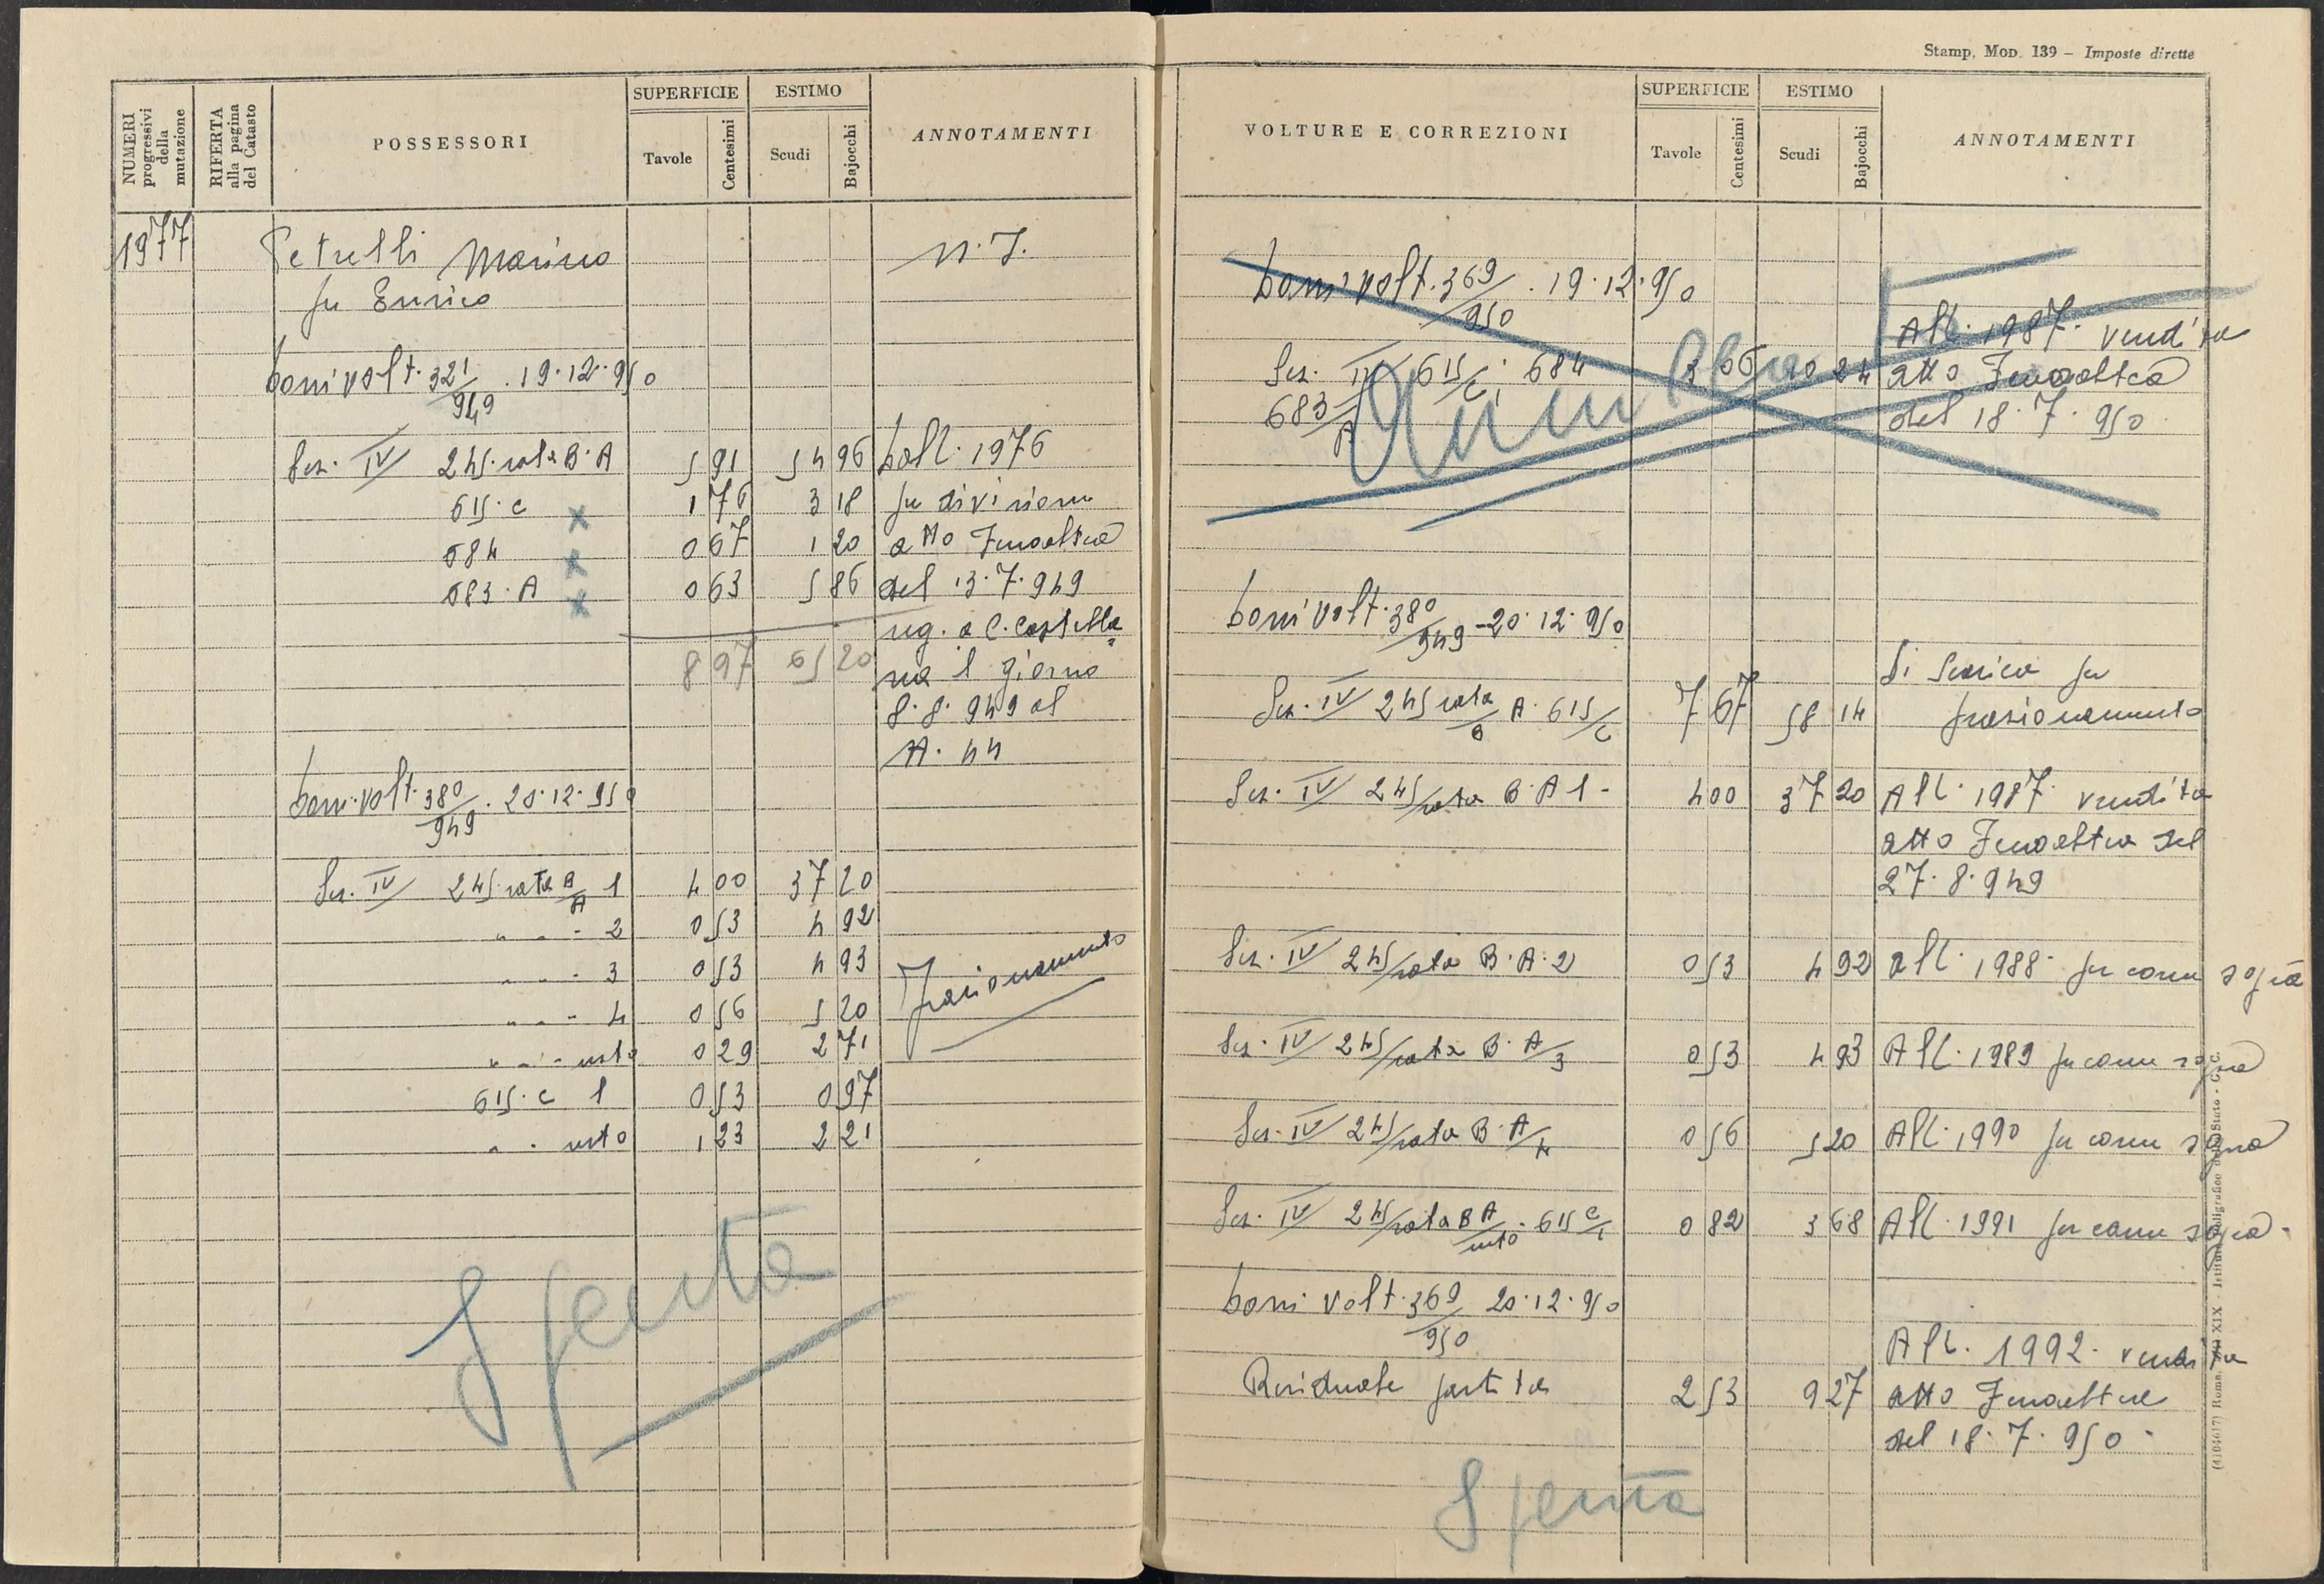 NUMERI progressivi della mutazione
RIFERTA alla pagina del Catasto
POSSESSORI
SUPERFICIE
Tavole
Centesimi
ESTIMO
Scudi
Bajocchi
ANNOTAMENTI
1977
Petrelli Marino
fu Enrico
volt. 321/949 . 19.12.950
Sez. IV 245 rata B.A 5 91 54 96 1976
615.C x 1 76 3 18 per divisione
684 x 0 67 1 20 atto
683.A x 0 63 5 86 del 13.7.949
reg. a C. Castella
8 97 65 20 na l giorno
8.8.949 al
N. 44
volt. 380/949 . 20.12.950
Sez. IV 245 rata B/A 1 4 00 37 20
" " - 2 0 53 4 92
" " - 3 0 53 4 93
" " - 4 0 56 5 20
" " - resto 0 29 2 71
Frazionamento
615.C 1 0 53 0 97
" . resto 1 23 2 21
Spenta
Stamp. Mod. 139 – Imposte dirette
VOLTURE E CORREZIONI
SUPERFICIE
Tavole
Centesimi
ESTIMO
Scudi
Bajocchi
ANNOTAMENTI
volt. 369/950 . 19.12.950
All. 1987. vendita
Sez. IV 615/C; 684 3 06 10 24 atto
683/A del 18.7.950
volt. 380/949 - 20.12.950
Si scarica per
Sez. IV 245 rata/B A. 615/C 7 67 58 14 frazionamento
Sez. IV 245/rata B.A 1- 4 00 37 20 All. 1987. vendita
atto del
27.8.949
Sez. IV 245/rata B.A.2 0 53 4 92 All. 1988. per come sopra
Sez. IV 245/rata B.A/3 0 53 4 93 All. 1989 per come sopra
Sez. IV 245/rata B.A/4 0 56 5 20 All. 1990 per come sopra
Sez. IV 245/rata B A/resto . 615 C/1 0 82 3 68 All. 1991 per come sopra.
volt. 369/950 20.12.950
All. 1992. vendita
Residuale partita 2 53 9 27 atto
del 18.7.950.
Spenta